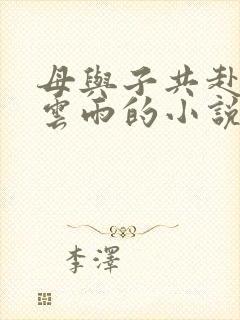 母與子共赴
雲雨的小說
李澤